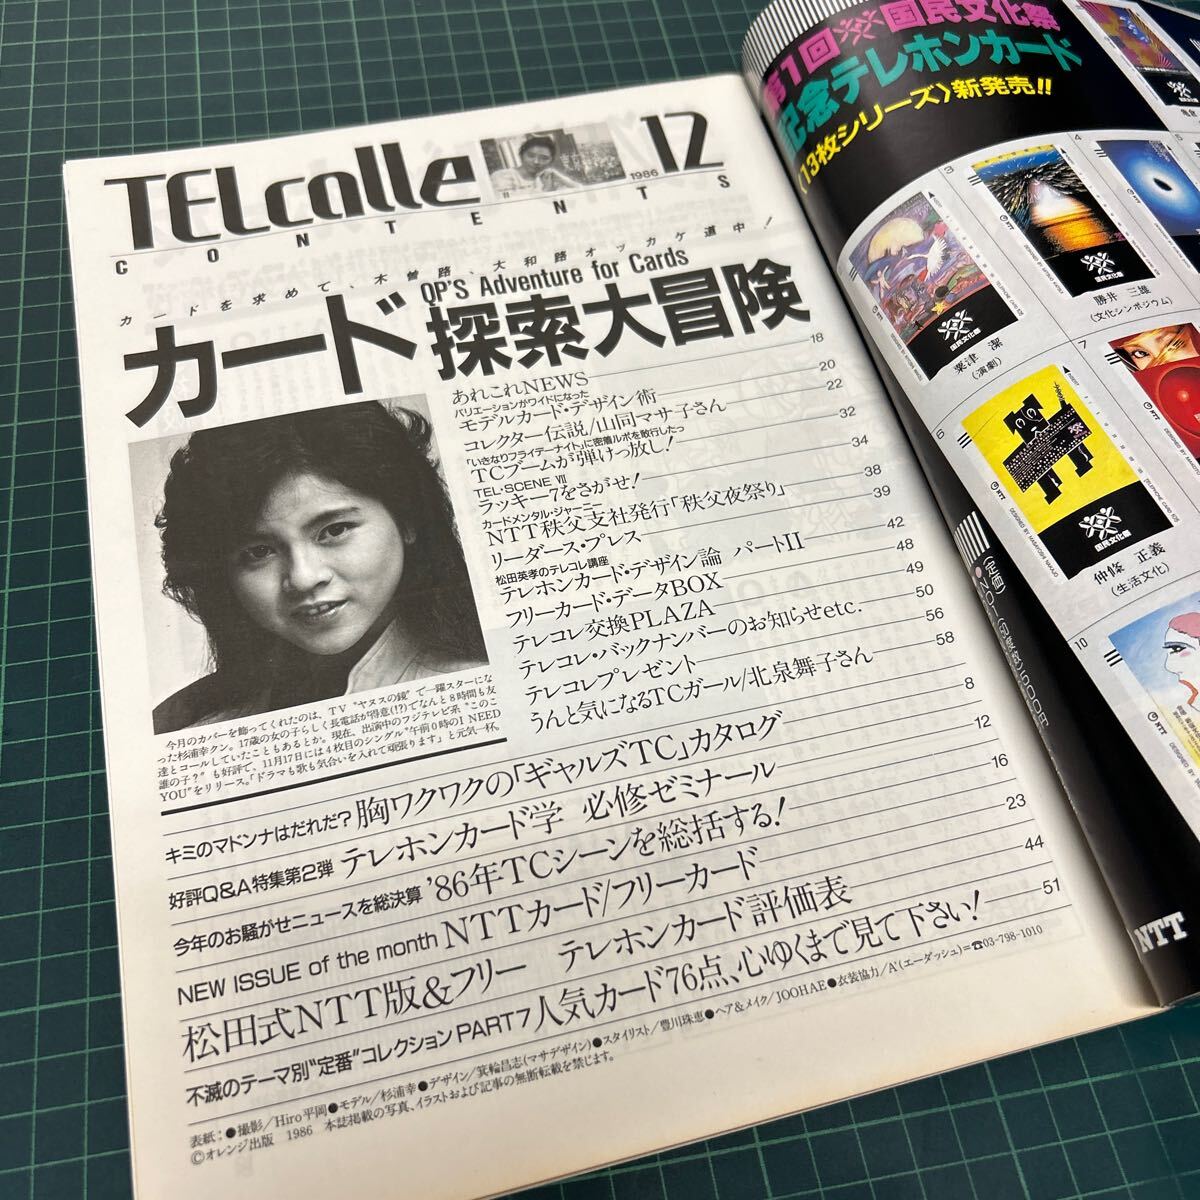 TELcolle
1986
12
CONTENTS
カードを求めて、木曽路、大和路オッカケ道中!
QP'S Adventure for Cards
カード探索大冒険
18
あれこれNEWS
20
バリエーションがワイドになった
モデルカード・デザイン術
22
コレクター伝説/山同マサ子さん
32
「いきなりフライデーナイト」に密着ルポを敢行したっ
TCブームが弾けっ放し!
34
TEL・SCENE Ⅶ
ラッキー7をさがせ!
38
カードメンタル・ジャーニー
NTT秩父支社発行「秩父夜祭り」
39
リーダース・プレス
42
松田英孝のテレコレ講座
テレホンカード・デザイン論 パートII
48
フリーカード・データBOX
49
テレコレ交換PLAZA
50
テレコレ・バックナンバーのお知らせetc.
56
テレコレプレゼント
58
うんと気になるTCガール/北泉舞子さん
8
今月のカバーを飾ってくれたのは、TV“ヤヌスの鏡”で一躍スターにな
った杉浦幸クン。17歳の女の子らしく長電話が得意(!?)でなんと8時間も友
達とコールしていたこともあるとか。現在、出演中のフジテレビ系“このこ
誰の子?”も好評で、11月17日には4枚目のシングル“午前0時のI NEED
YOU”をリリース。「ドラマも歌も気合いを入れて頑張ります」と元気一杯。
キミのマドンナはだれだ?胸ワクワクの「ギャルズTC」カタログ
12
好評Q&A特集第2弾 テレホンカード学 必修ゼミナール
16
今年のお騒がせニュースを総決算 '86年TCシーンを総括する!
23
NEW ISSUE of the month NTTカード/フリーカード
44
松田式NTT版&フリー テレホンカード評価表
51
不滅のテーマ別“定番”コレクションPART7 人気カード76点、心ゆくまで見て下さい!
表紙:●撮影/Hiro平岡●モデル/杉浦幸●デザイン/箕輪昌志(マサデザイン)●スタイリスト/豊川珠恵●ヘア&メイク/JOOHAE●衣装協力/A'(エーダッシュ)=☎03-798-1010
©オレンジ出版 1986 本誌掲載の写真、イラストおよび記事の無断転載を禁じます。
第1回 国民文化祭
記念テレホンカード
〈13枚シリーズ〉新発売!!
3
国民文化祭
粟津 潔
(演劇)
4
国民文化祭
勝井 三雄
(文化シンポジウム)
5
6
NTT
国民文化祭
仲條 正義
(生活文化)
7
NTT
10
(定価)
(50度数)500円
NTT